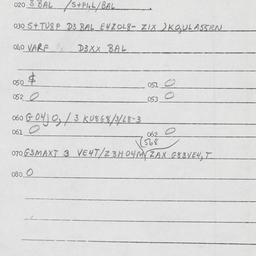 020 3 BAL /S+P4L/BAL
030 S+TU8P D3 BAL E4Z0L8- ZIX )KO,ULA55RN
040 VARF D3XX BAL
050 $ 051 0
052 0 053 0
060 G04J0,/3 KU868/3/L8-3
061 0 062 0
(568
070 G3MAXT 3 VE4T/Z3H04M, ZAX G83VE4,T
080 0